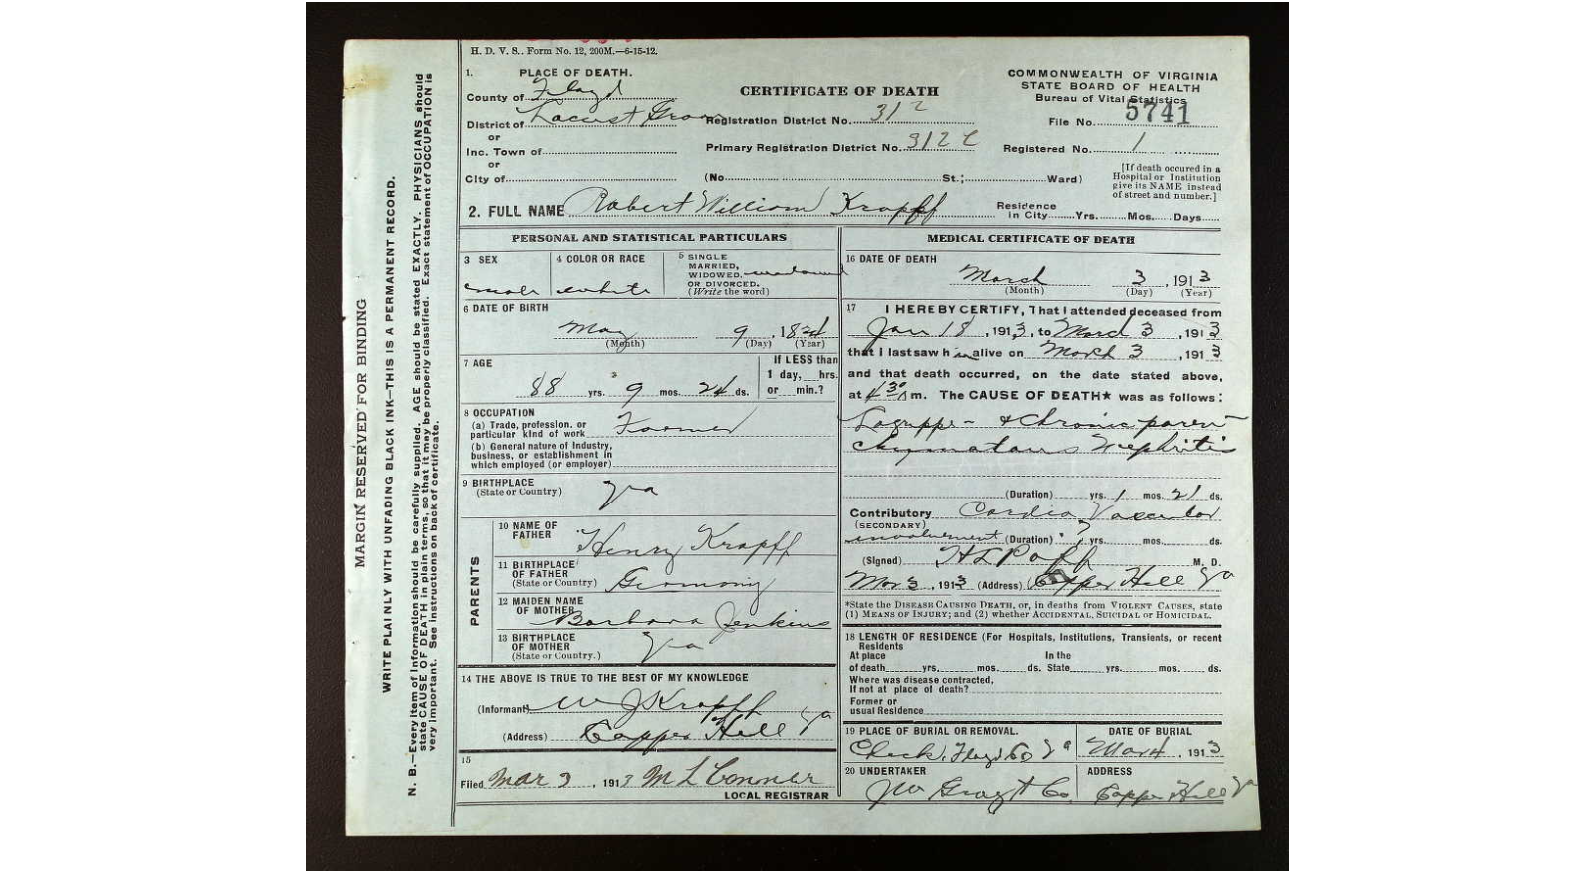 H. D. V. S.. Form No. 12, 200M.—6-15-12.
1. PLACE OF DEATH.
County of Floyd
District of Locust Grove
or
Inc. Town of
or
City of
CERTIFICATE OF DEATH
Registration District No. 312
Primary Registration District No. 312 C
(No. St.; Ward)
COMMONWEALTH OF VIRGINIA
STATE BOARD OF HEALTH
Bureau of Vital Statistics
File No. 5741
Registered No. 1
[If death occured in a
Hospital or Institution
give its NAME instead
of street and number.]
2. FULL NAME Robert William Krapff
Residence
in City Yrs. Mos. Days
PERSONAL AND STATISTICAL PARTICULARS
3 SEX
male
4 COLOR OR RACE
white
5 SINGLE
MARRIED,
WIDOWED,
OR DIVORCED.
(Write the word)
6 DATE OF BIRTH
May 9, 1824
(Month) (Day) (Year)
7 AGE
88 yrs. 9 mos. 24 ds.
If LESS than
1 day, hrs.
or min.?
8 OCCUPATION
(a) Trade, profession, or
particular kind of work Farmer
(b) General nature of Industry,
business, or establishment in
which employed (or employer)
9 BIRTHPLACE
(State or Country) Va
PARENTS
10 NAME OF
FATHER Henry Krapff
11 BIRTHPLACE
OF FATHER
(State or Country) Germany
12 MAIDEN NAME
OF MOTHER Barbara Jenkins
13 BIRTHPLACE
OF MOTHER
(State or Country.) Va
14 THE ABOVE IS TRUE TO THE BEST OF MY KNOWLEDGE
(Informant) W J Krapff
(Address) Copper Hill Va
15
Filed Mar 3, 1913 M L Conner
LOCAL REGISTRAR
MEDICAL CERTIFICATE OF DEATH
16 DATE OF DEATH
March 3, 1913
(Month) (Day) (Year)
17 I HEREBY CERTIFY, That I attended deceased from
Jan 18, 1913, to March 3, 1913
that I last saw him alive on March 3, 1913
and that death occurred, on the date stated above,
at 4 30 a m. The CAUSE OF DEATH★ was as follows:
Lagrippe - & Chronic paren
chymatous Nephritis
(Duration) yrs. 1 mos. 21 ds.
Contributory Cardio Vascular
(SECONDARY)
involvement (Duration) yrs. mos. ds.
(Signed) H L Poff M. D.
Mar 3, 1913 (Address) Copper Hill Va
*State the DISEASE CAUSING DEATH, or, in deaths from VIOLENT CAUSES, state
(1) MEANS OF INJURY; and (2) whether ACCIDENTAL, SUICIDAL or HOMICIDAL.
18 LENGTH OF RESIDENCE (For Hospitals, Institutions, Transients, or recent
Residents
At place In the
of death yrs. mos. ds. State yrs. mos. ds.
Where was disease contracted,
If not at place of death?
Former or
usual Residence
19 PLACE OF BURIAL OR REMOVAL.
Check, Floyd Co Va
DATE OF BURIAL
Mar 4, 1913
20 UNDERTAKER
J W Gray & Co
ADDRESS
Copper Hill Va
MARGIN RESERVED FOR BINDING
WRITE PLAINLY WITH UNFADING BLACK INK—THIS IS A PERMANENT RECORD.
N. B.—Every item of Information should be carefully supplied. AGE should be stated EXACTLY. PHYSICIANS should
state CAUSE OF DEATH in plain terms, so that it may be properly classified. Exact statement of OCCUPATION is
very important. See instructions on back of certificate.